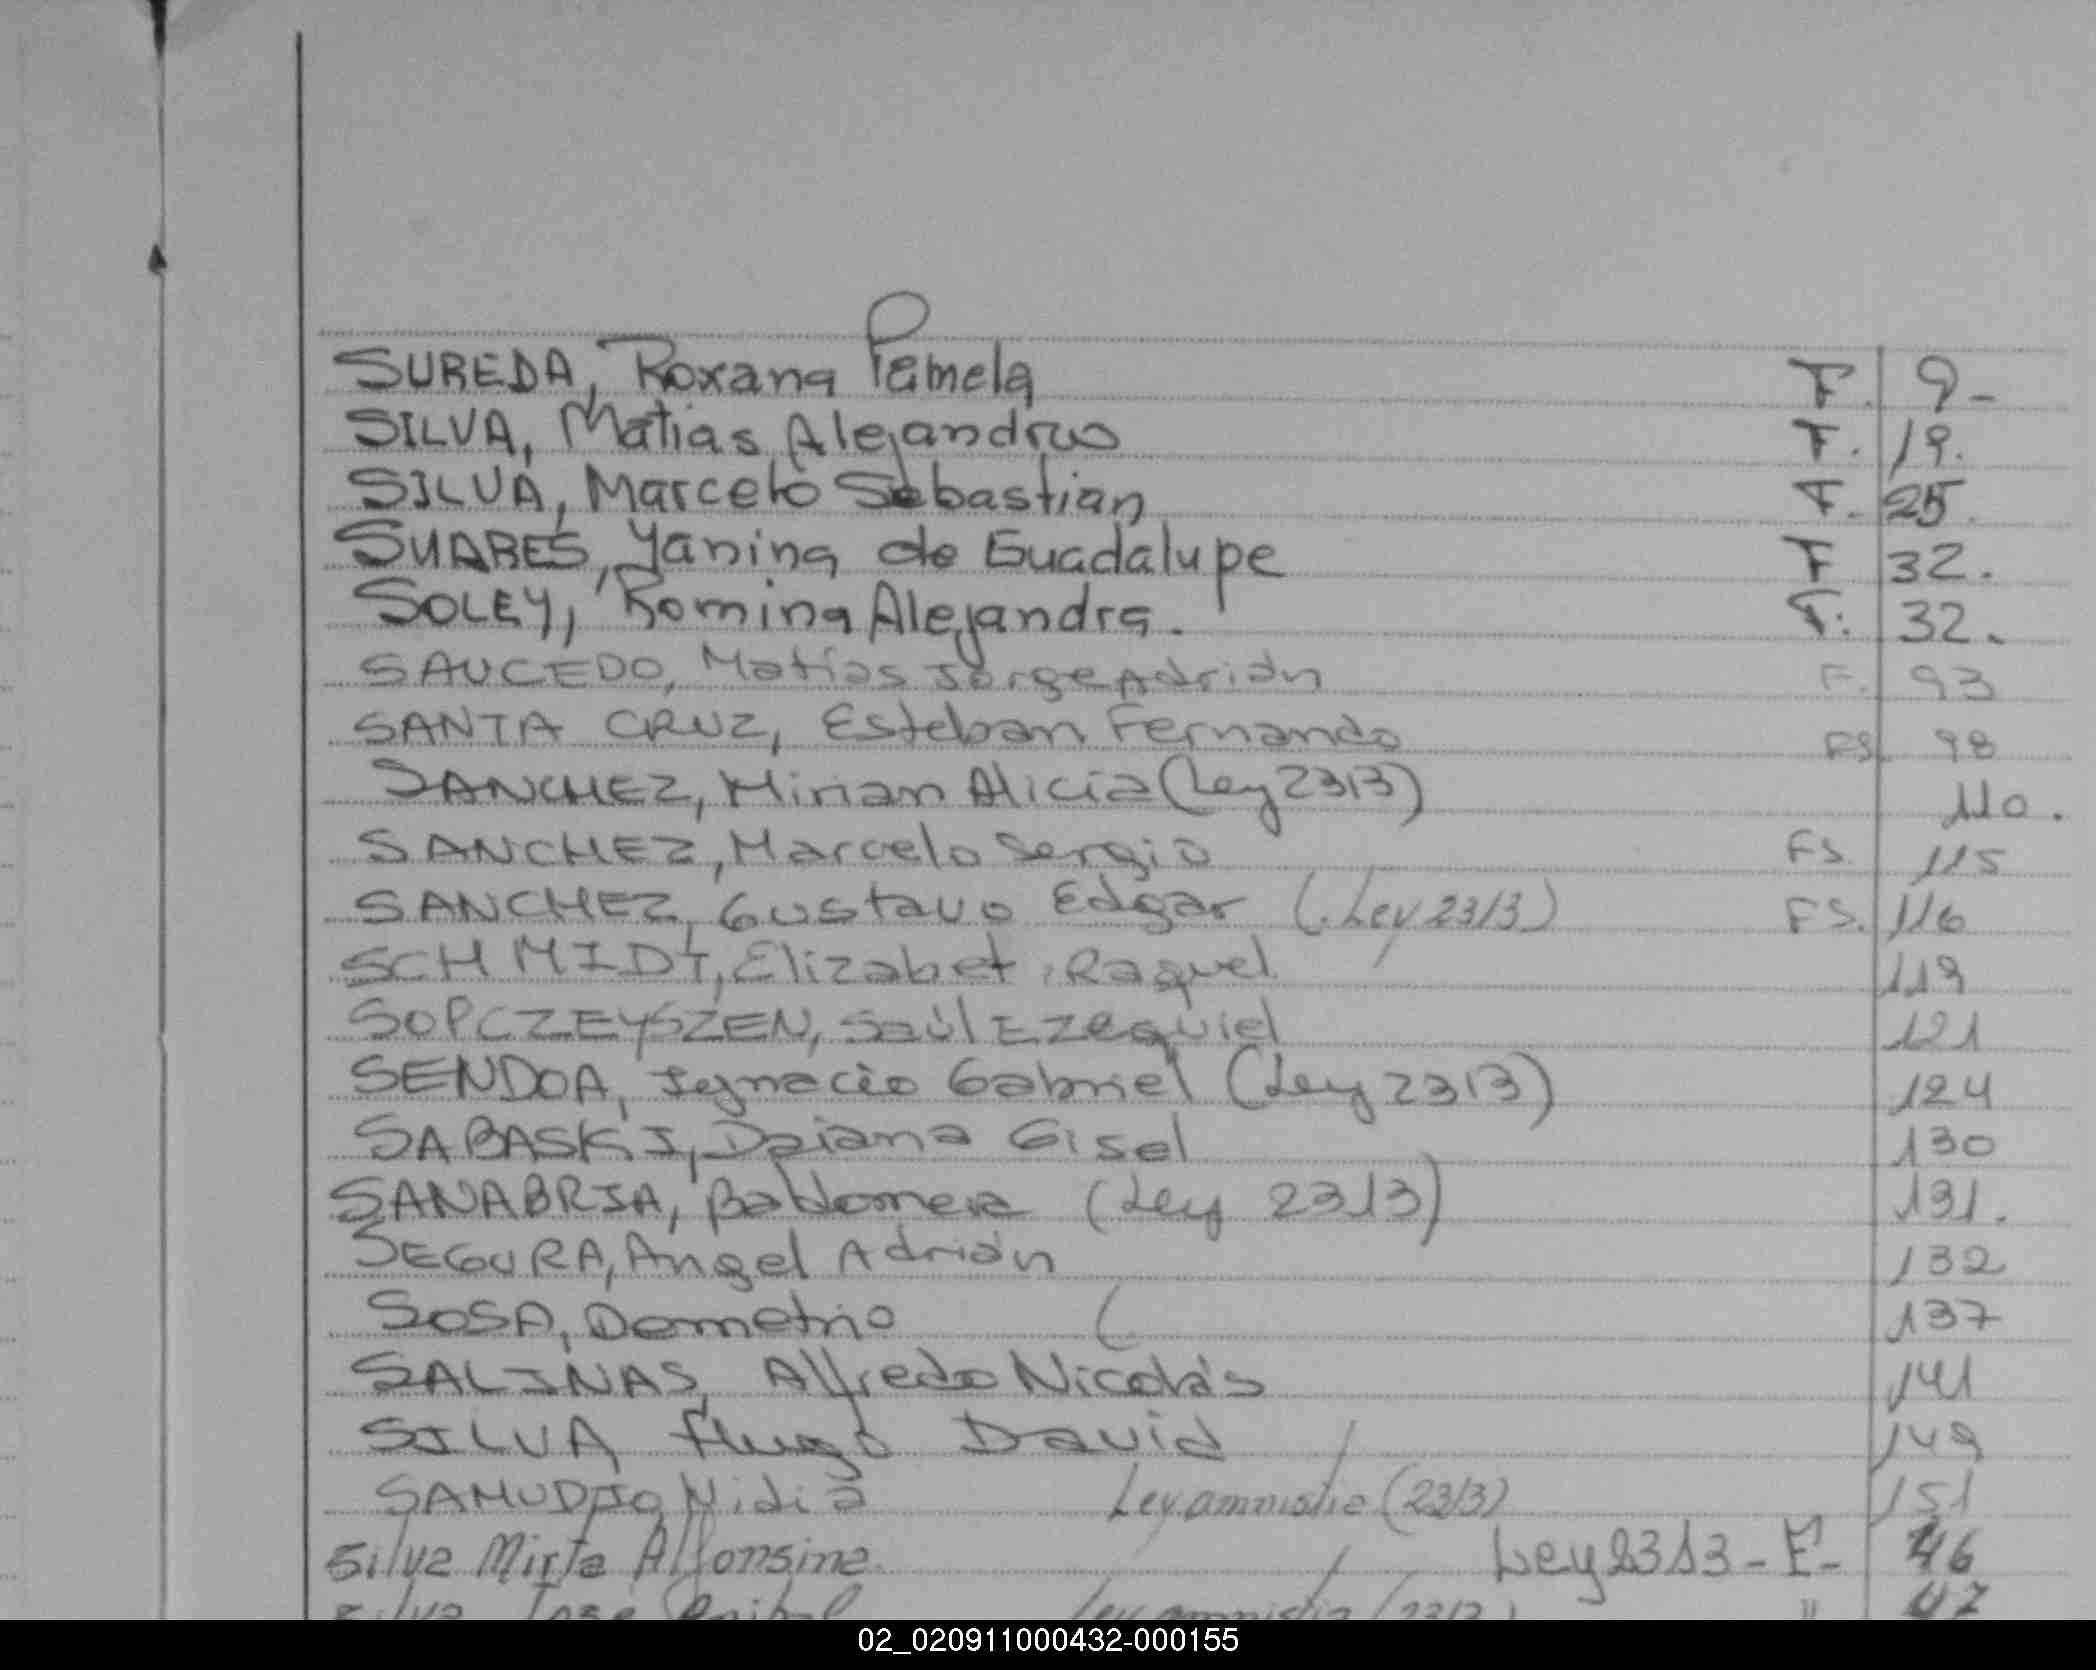 SUREDA, Roxana Pamela F. 9-
SILVA, Matias Alejandro F. 19.
SILVA, Marcelo Sebastian F. 25.
SUARES, Yanina de Guadalupe F 32.
SOLEY, Romina Alejandra. F. 32.
SAUCEDO, Matías Jorge Adrián F. 93
SANTA CRUZ, Esteban Fernando FS. 98
SANCHEZ, Mirian Alicia (Ley 2313) 110.
SANCHEZ, Marcelo Sergio FS. 115
SANCHEZ, Gustavo Edgar (Ley 2313) FS. 116
SCHMIDT, Elizabet Raquel 119
SOPCZEYSZEN, Saúl Ezequiel 121
SENDOA, Ignacio Gabriel (Ley 2313) 124
SABASKI, Daiana Gisel 130
SANABRIA, Baldomera (Ley 2313) 131.
SEGURA, Angel Adrián 132
SOSA, Demetrio ( 137
SALINAS, Alfredo Nicolás 141
SILVA Hugo David 149
SAMUDIO, Nidia Ley amnistia (2313) 151
Silva Mirta Alfonsina. Ley 2313-F- 46
Silva José Ley amnistia (2313) " 47
02_020911000432-000155